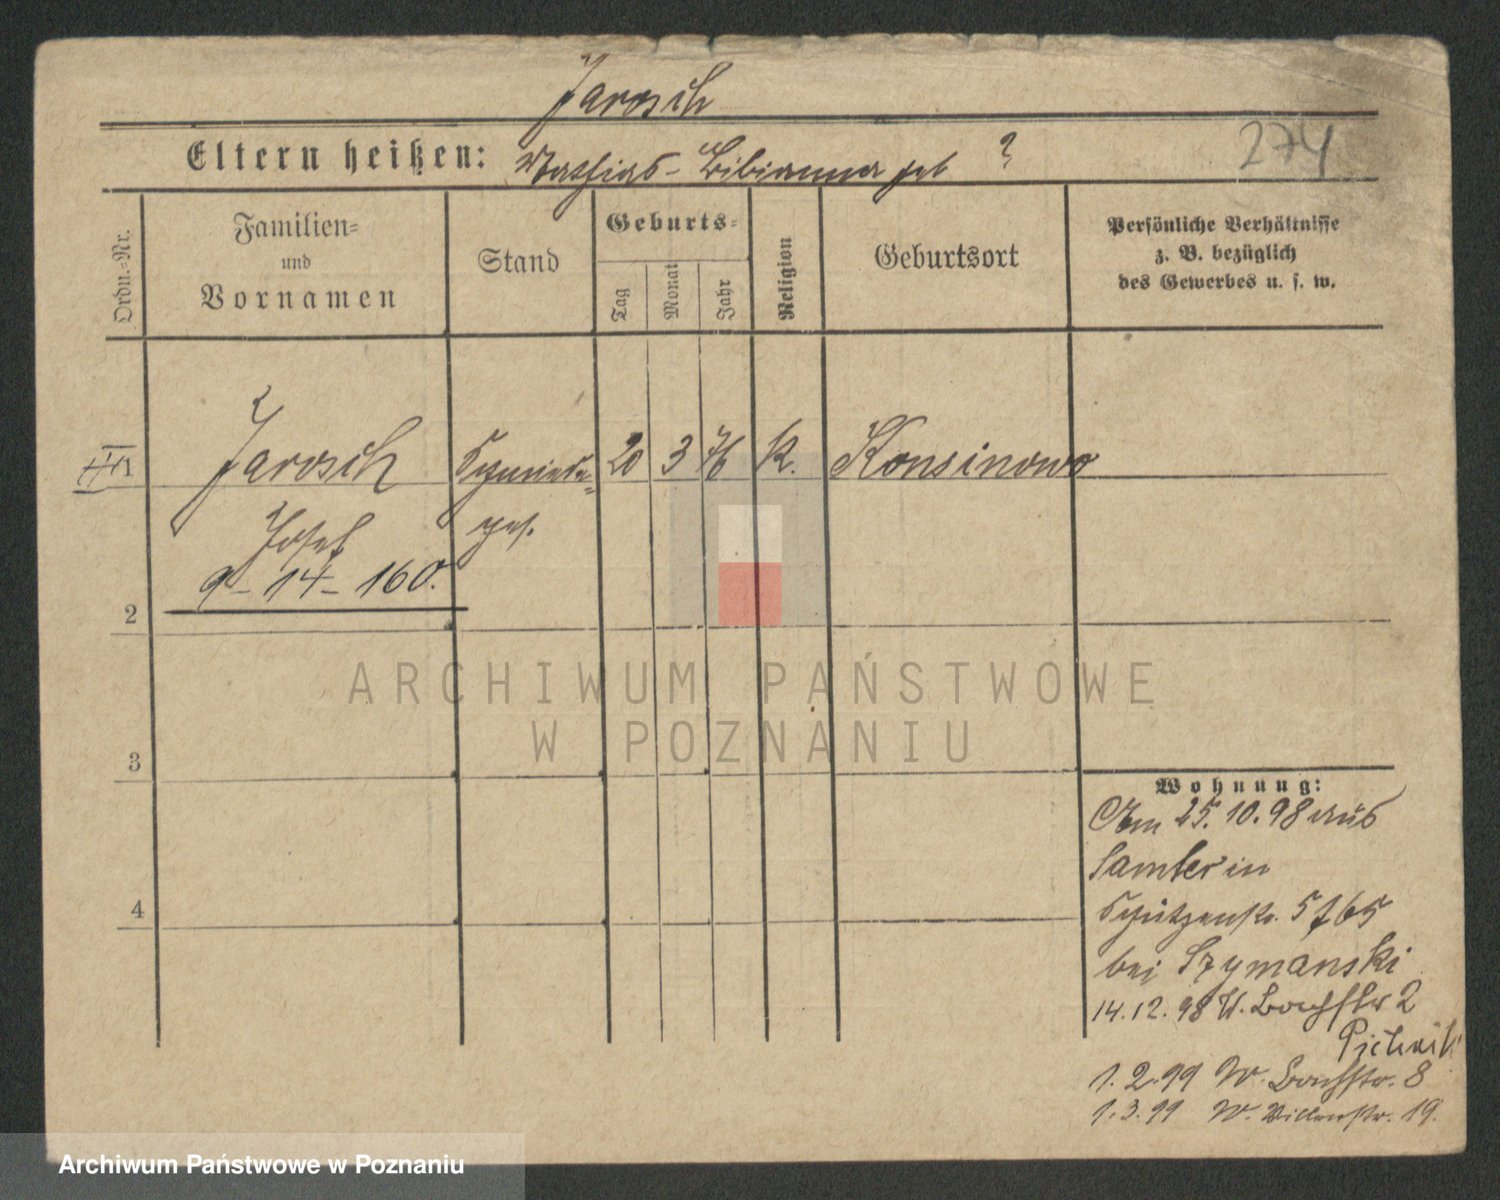 Jarosch
Eltern heißen: Mathias - Bibianna geb ?
274
Ordn.-Nr.
Familien-
und
Vornamen
Stand
Geburts-
Tag
Monat
Jahr
Religion
Geburtsort
Persönliche Verhältnisse
z. B. bezüglich
des Gewerbes u. s. w.
1 Jarosch Schmiede- 20 3 76 k. Konsinowo
Josef ges.
9-14-160.
2
3
4
Wohnung:
Am 25.10.98 aus
Samter in
Schützenstr. 5
bei Szymanski
14.12.98 W. Bachstr 2
1.2.99 W. Bachstr. 8
1.3.99 W. Villenstr. 19.
ARCHIWUM PAŃSTWOWE
W POZNANIU
Archiwum Państwowe w Poznaniu